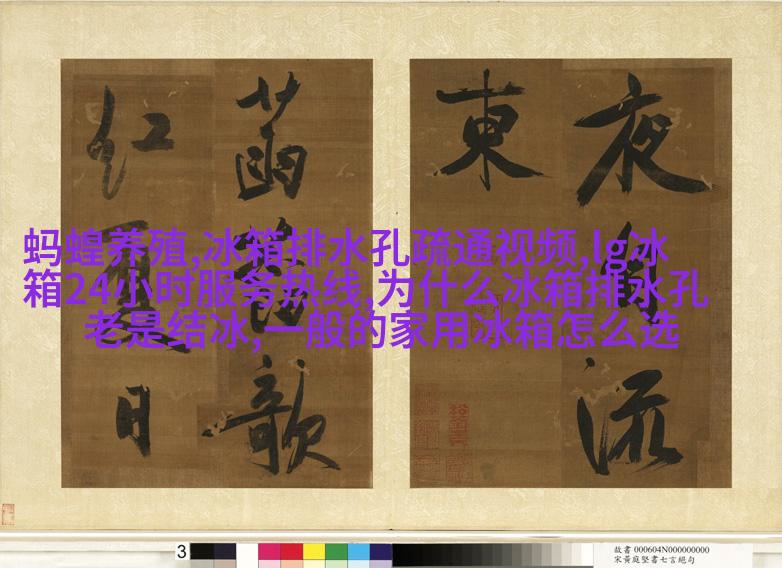 夜自流
東
菡萏歌
紅
日
蚂蝗养殖,冰箱排水孔疏通视频,lg冰
箱24小时服务热线,为什么冰箱排水孔
老是结冰,一般的家用冰箱怎么选
3
故書 000604N000000000
宋黃庭堅書七言絕句